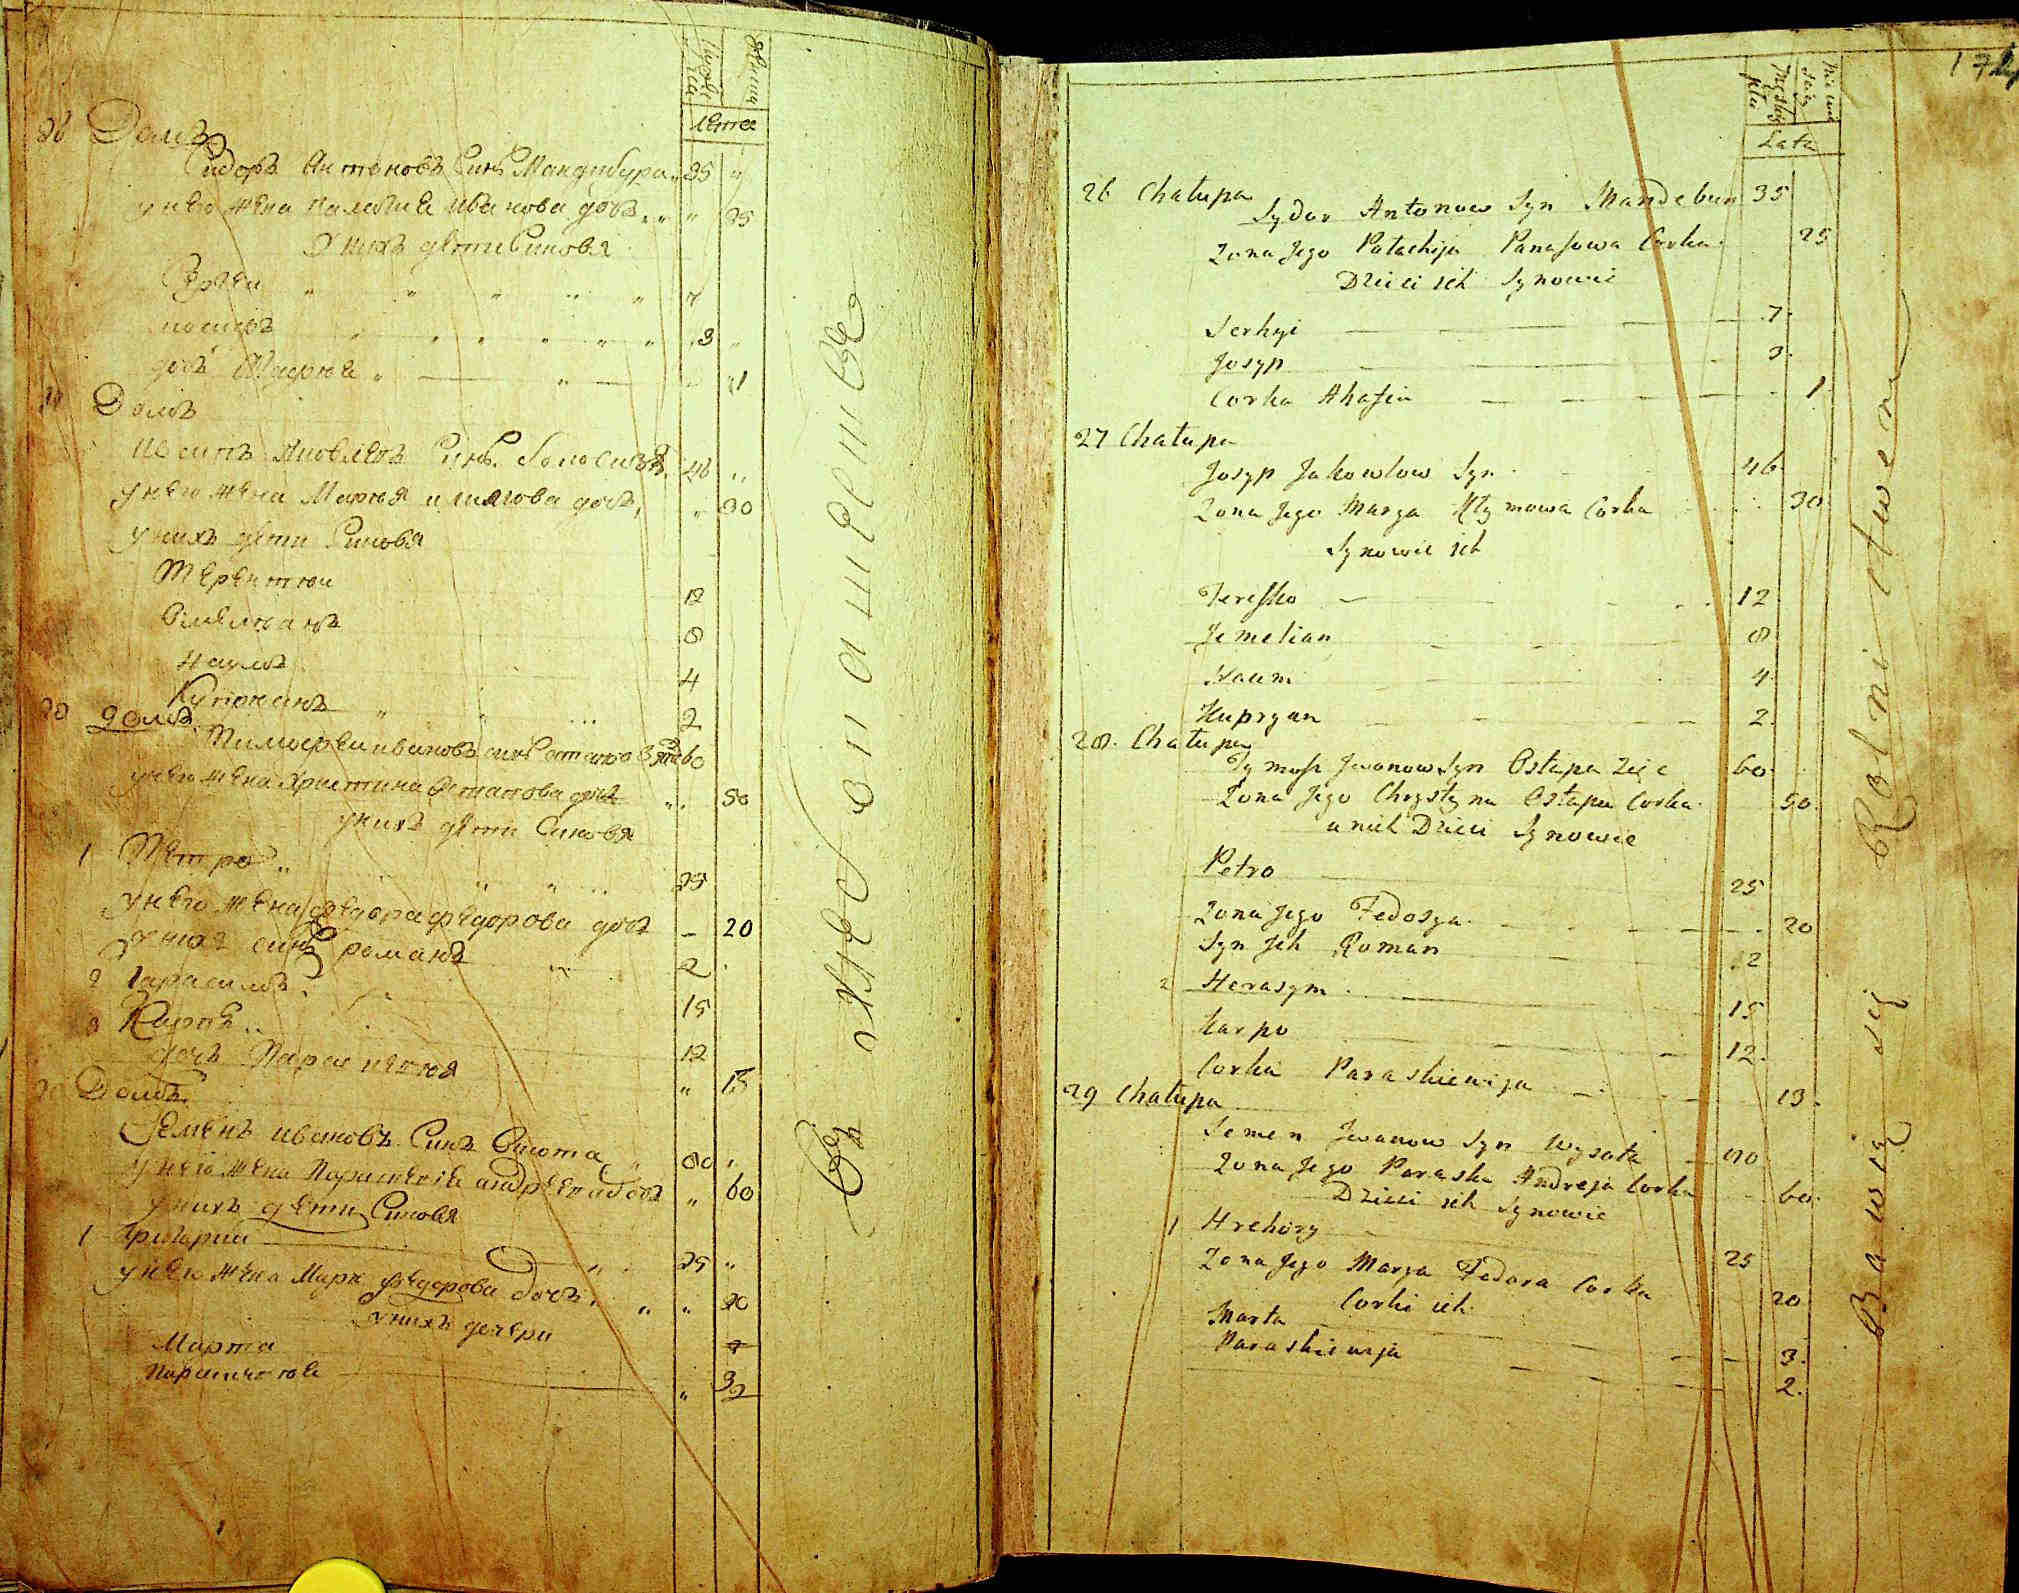 Мужеска
Женска
лета
26 Домъ
Сидоръ Антоновъ Синъ Мандибура 35
у него жена Палагия Иванова дочь 25
У нихъ дети Синовя
Сергеи 7
иосипъ 3
дочь 1
Домъ
Иосипъ Яковлевъ Синъ 46
у него жена Мария дочь 30
у нихъ дети Синовя
Терентии 12
Омелянъ 8
Наумъ 4
Куприянъ 2
28 Домъ
Тимофеи ивановъ синъ 60
у него жена Християна Остапова дочь 50
у нихъ дети Синовя
1 Петро 25
у него жена Федора Федорова дочь 20
У нихъ синъ романъ 2
2 Гарасимъ 15
3 Карпъ 12
дочь Параскевия 13
Домъ
Семенъ ивановъ Синъ Висота 80
у него жена Параскевия андреева дочь 60
у нихъ дети Синовя
1 Григории 25
у него жена Мария Федорова дочь 20
У нихъ дочери
Марта 3
Параскевия 2
въ хлебопашестве
172
Męskiej
płci
Latа
26 Chałupa
Sydor Antonow Syn Mandebura 35
Zona Jego Pałachija Panasowa Corka 25
Dzieci ich Synowie
Serhyi 7
Josyp 3
Corka Ahafia 1
27 Chałupa
Josyp Jakowlow Syn 46
Zona Jego Marya Kłymowa Corka 30
Synowie ich
Tereszko 12
Jemelian 8
Naum 4
Kupryan 2
28. Chałupa
Tymosz Jwanow Syn Ostapa Zięć 60
Zona Jego Chrystyna Ostapa Corka 50.
u nich Dzieci Synowie
Petro 25
Zona Jego Fedosya 20
Syn Jch Roman 2
2 Herasym 15
Karpo 12.
Corka Paraskiewija 13.
29 Chałupa
Semen Jwanow Syn Wysota 80
Zona Jego Paraska Andreja Corka 60.
Dzieci ich Synowie
1 Hrehory 25
Zona Jego Marya Fedora Corka 20
Corki ich
Marta 3.
Paraskiewija 2.
Bawią się Rolnictwem